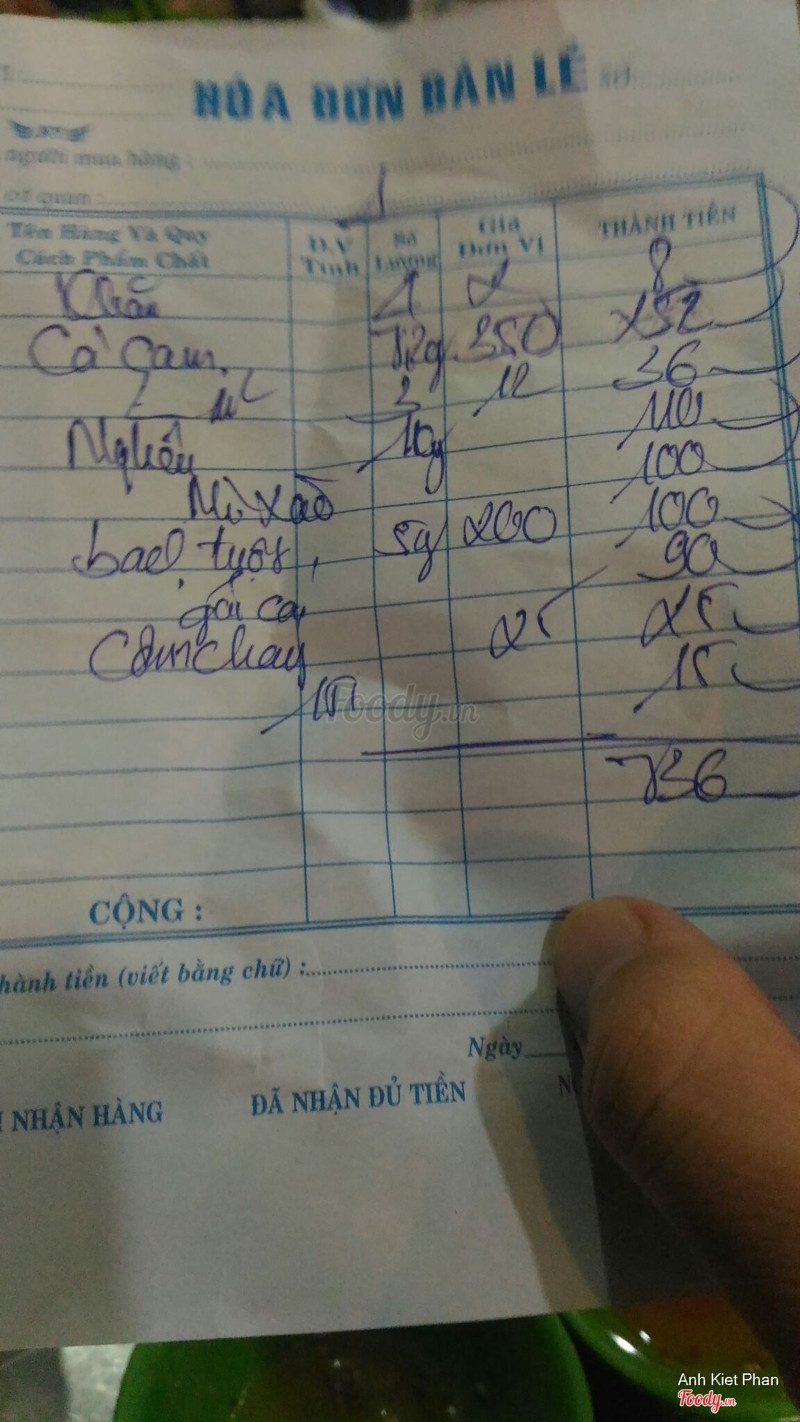 HÓA ĐƠN BÁN LẺ SỐ
người mua hàng :
cơ quan :
Tên Hàng Và Quy Cách Phẩm Chất Đ.V Tính Số Lượng Giá Đơn Vị THÀNH TIỀN
Khăn 4 2 8
Cá Cam 7,2g 350 252
3 12 36
Nghêu 1kg 110
Mì xào 100
bạch tuộc 5g 200 100
gỏi cá 90
Cơm cháy 25 25
15
736
CỘNG :
hành tiền (viết bằng chữ) :
Ngày
NHẬN HÀNG ĐÃ NHẬN ĐỦ TIỀN
Foody.vn
Anh Kiet Phan
Foody.vn